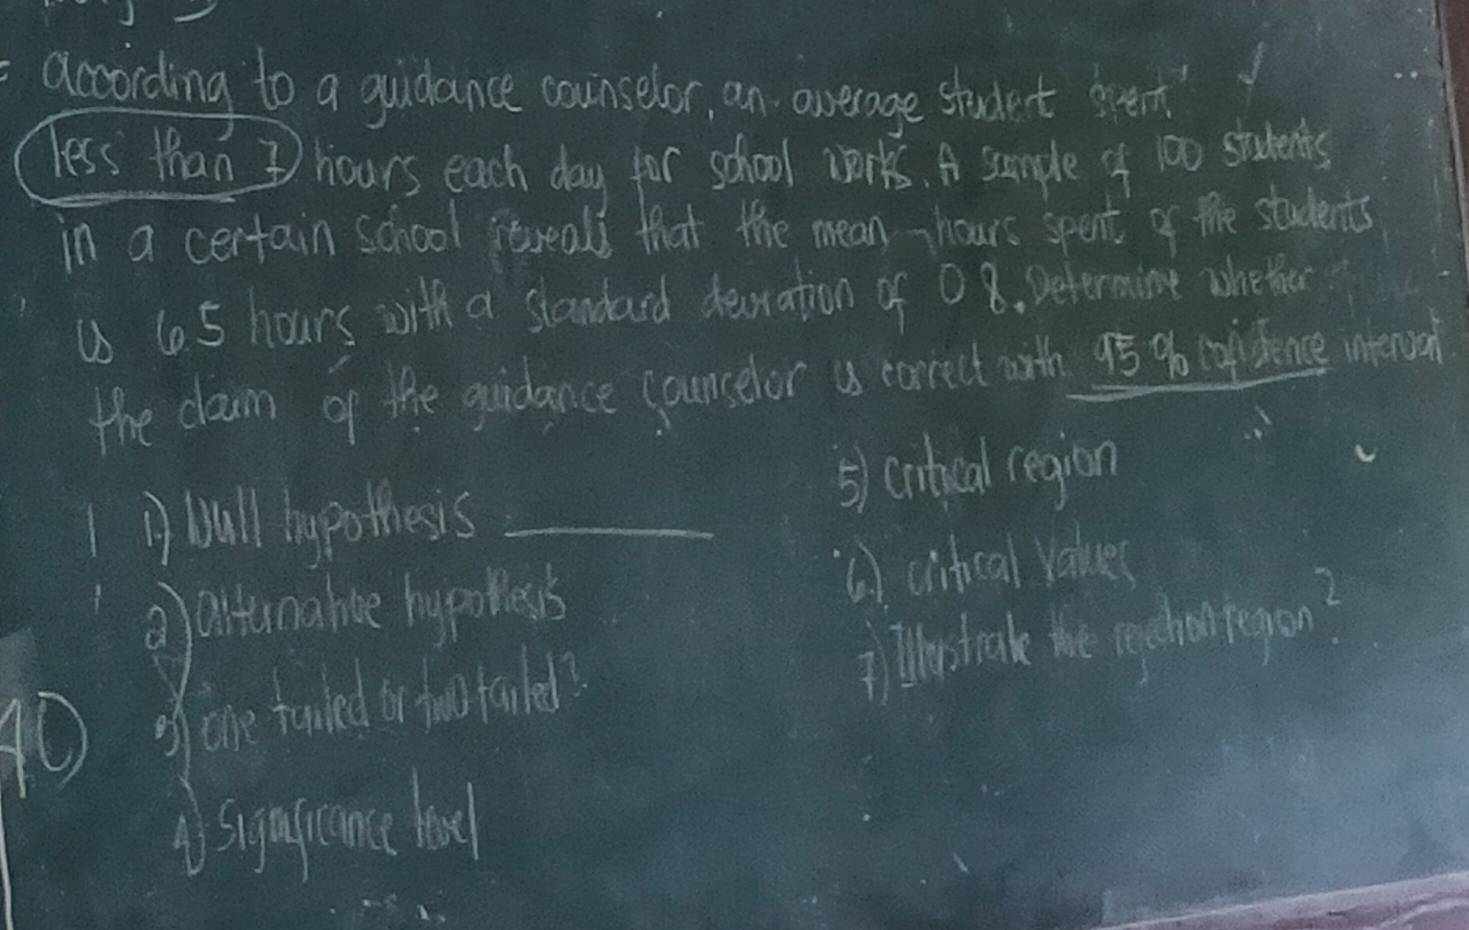 according to a guidance counselor, an average student spent
less than 7 hours each day for school works. A sample of 100 students
in a certain school reveals that the mean hours spent of the students
is 6.5 hours with a standard deviation of 0.8. Determine whether
the claim of the guidance counselor is correct with 95% confidence interval
1) Null hypothesis ______
2) alternative hypothesis
3) one tailed or two tailed?
4) Significance level
5) critical region
6.) critical values
7) Illustrate the rejection region?
40